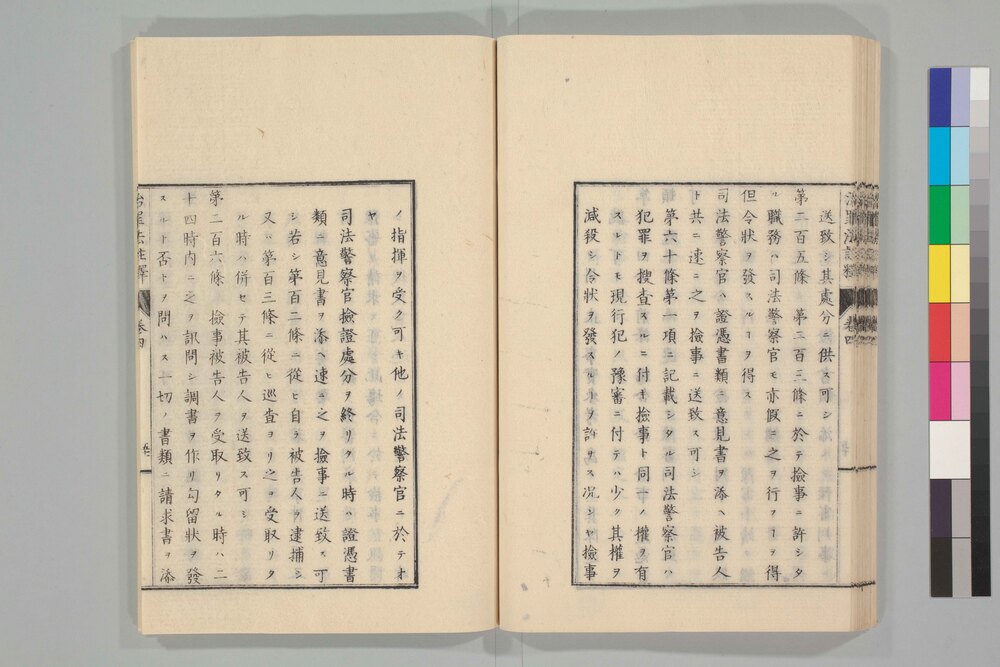 治罪法註釋 卷四
送致シ其處分ニ供ス可シ
第二百五條 第二百三條ニ於テ撿事ニ許シタ
ル職務ハ司法警察官モ亦假ニ之ヲ行フヿヲ得
但令狀ヲ發スルヿヲ得ス
司法警察官ハ證憑書類ニ意見書ヲ添ヘ被告人
ト共ニ速ニ之ヲ撿事ニ送致ス可シ
第六十條第一項ニ記載シタル司法警察官ハ
犯罪ヲ搜査スルニ付キ撿事ト同一ノ權ヲ有
スレトモ現行犯ノ豫審ニ付テハ少ク其權ヲ
減殺シ令狀ヲ發スルヿヲ許サス況ンヤ撿事
ノ指揮ヲ受ク可キ他ノ司法警察官ニ於テオ
ヤ
司法警察官撿證處分ヲ終リタル時ハ證憑書
類ニ意見書ヲ添ヘ速ニ之ヲ撿事ニ送致ス可
シ若シ第百二條ニ從ヒ自ラ被告人ヲ逮捕シ
又ハ第百三條ニ從ヒ巡査ヨリ之ヲ受取リタ
ル時ハ併セテ其被告人ヲ送致ス可シ
第二百六條 撿事被告人ヲ受取リタル時ハ二
十四時內ニ之ヲ訊問シ調書ヲ作リ勾留狀ヲ發
スルト否トヲ問ハス一切ノ書類ニ請求書ヲ添
治罪法註釋 卷四